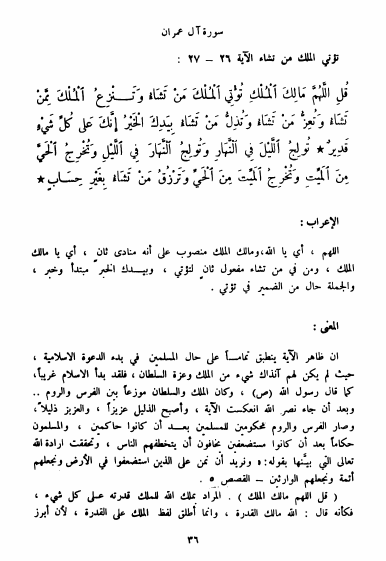 سورة آل عمران
تؤتي الملك من تشاء الآية ٢٦ – ٢٧ :
قُلِ اللَّهُمَّ مَالِكَ الْمُلْكِ تُؤْتِي الْمُلْكَ مَنْ تَشَاءُ وَتَنْزِعُ الْمُلْكَ مِمَّنْ
تَشَاءُ وَتُعِزُّ مَنْ تَشَاءُ وَتُذِلُّ مَنْ تَشَاءُ بِيَدِكَ الْخَيْرُ إِنَّكَ عَلَى كُلِّ شَيْءٍ
قَدِيرٌ * تُولِجُ اللَّيْلَ فِي النَّهَارِ وَتُولِجُ النَّهَارَ فِي اللَّيْلِ وَتُخْرِجُ الْحَيَّ
مِنَ الْمَيِّتِ وَتُخْرِجُ الْمَيِّتَ مِنَ الْحَيِّ وَتَرْزُقُ مَنْ تَشَاءُ بِغَيْرِ حِسَابٍ *
الإعراب :
اللهم ، أي يا الله، ومالك الملك منصوب على أنه منادى ثان ٍ ، أي يا مالك
الملك ، ومن في من تشاء مفعول ثان ٍ لتؤتي ، وبيدك الخير مبتدأ وخبر ،
والجملة حال من الضمير في تؤتي .
المعنى :
ان ظاهر الآية ينطبق تماماً على حال المسلمين في بدء الدعوة الاسلامية ،
حيث لم يكن لهم آنذاك شيء من الملك وعزة السلطان ، فلقد بدأ الاسلام غريباً،
كما قال رسول الله (ص) ، وكان الملك والسلطان موزعاً بين الفرس والروم ..
وبعد أن جاء نصر الله انعكست الآية ، وأصبح الذليل عزيزاً ، والعزيز ذليلاً،
وصار الفرس والروم محكومين للمسلمين بعد أن كانوا حاكمين ، والمسلمون
حكاماً بعد أن كانوا مستضعفين يخافون أن يتخطفهم الناس ، وتحققت ارادة الله
تعالى التي بيّنها بقوله : « ونريد أن نمن على الذين استضعفوا في الأرض ونجعلهم
أئمة ونجعلهم الوارثين – القصص ٥ » .
( قل اللهم مالك الملك ) . المراد بملك الله للملك قدرته على كل شيء ،
فكأنه قال : الله مالك القدرة ، وانما أطلق لفظ الملك على القدرة ، لأن أبرز
٣٦